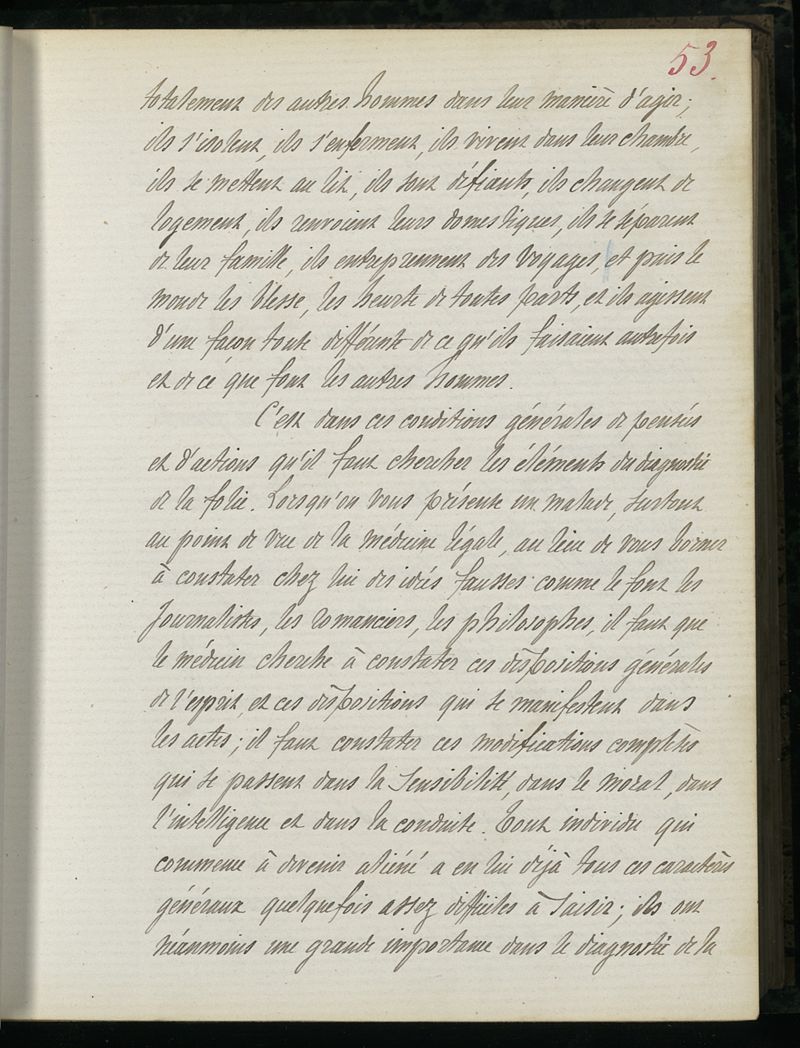 53.
totalement des autres hommes dans leur manière d'agir;
ils s'isolent, ils s'enferment, ils vivent dans leur chambre,
ils se mettent au lit, ils sont défiants, ils changent de
logement, ils renvoient leurs domestiques, ils se séparent
de leur famille, ils entreprennent des voyages, et puis le
monde les blesse, les heurte de toutes parts, et ils agissent
d'une façon toute différente de ce qu'ils faisaient autrefois
et de ce que font les autres hommes.
C'est dans ces conditions générales de pensées
et d'actions qu'il faut chercher les éléments du diagnostic
de la folie. Lorsqu'on vous présente un malade, surtout
au point de vue de la médecine légale, au lieu de vous borner
à constater chez lui des idées fausses comme le font les
journalistes, les romanciers, les philosophes, il faut que
le médecin cherche à constater ces dispositions générales
de l'esprit, et ces dispositions qui se manifestent dans
les actes; il faut constater ces modifications complètes
qui se passent dans la sensibilité, dans le moral, dans
l'intelligence et dans la conduite. Tout individu qui
commence à devenir aliéné a en lui déjà tous ces caractères
généraux quelquefois assez difficiles à saisir; ils ont
néanmoins une grande importance dans le diagnostic de la